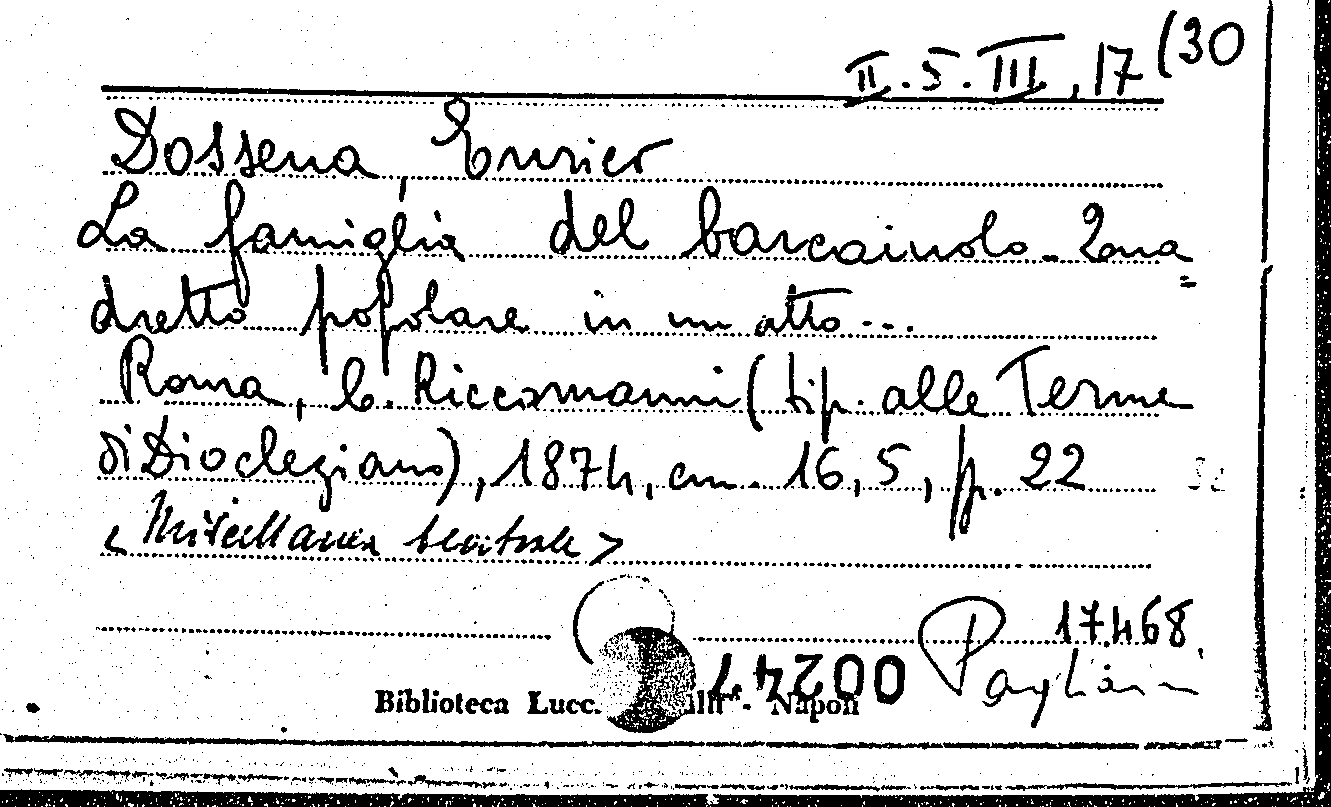 II.5.III,17(30
Dossena, Enrico
La famiglia del barcaiuolo - Qua=
dretto popolare in un atto...
Roma, C. Riccomanni (tip. alle Terme
di Diocleziano), 1874, cm. 16,5, pp. 22
<Miscellanea teatrale>
17468
00247
Biblioteca Lucc. - Napoli